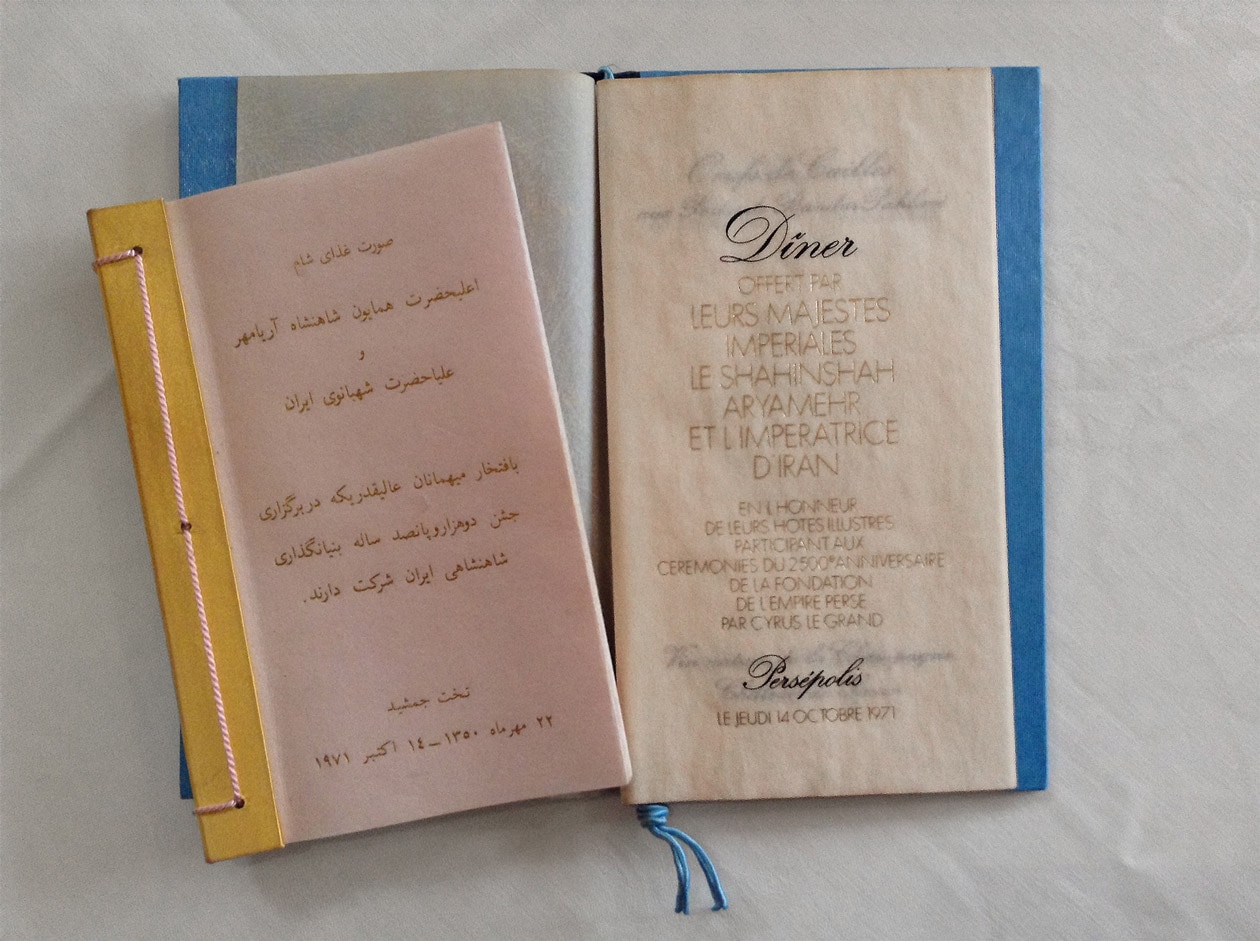 صورت غذای شام
اعلیحضرت همایون شاهنشاه آریامهر
و
علیاحضرت شهبانوی ایران
بافتخار میهمانان عالیقدریکه در برگزاری
جشن دوهزاروپانصد ساله بنیانگذاری
شاهنشاهی ایران شرکت دارند.
تخت جمشید
۲۲ مهرماه ۱۳۵۰ــ۱٤ اکتبر ۱۹۷۱
Dîner
OFFERT PAR
LEURS MAJESTES
IMPERIALES
LE SHAHINSHAH
ARYAMEHR
ET L'IMPERATRICE
D'IRAN
EN L'HONNEUR
DE LEURS HOTES ILLUSTRES
PARTICIPANT AUX
CEREMONIES DU 2500e ANNIVERSAIRE
DE LA FONDATION
DE L'EMPIRE PERSE
PAR CYRUS LE GRAND
Persépolis
LE JEUDI 14 OCTOBRE 1971